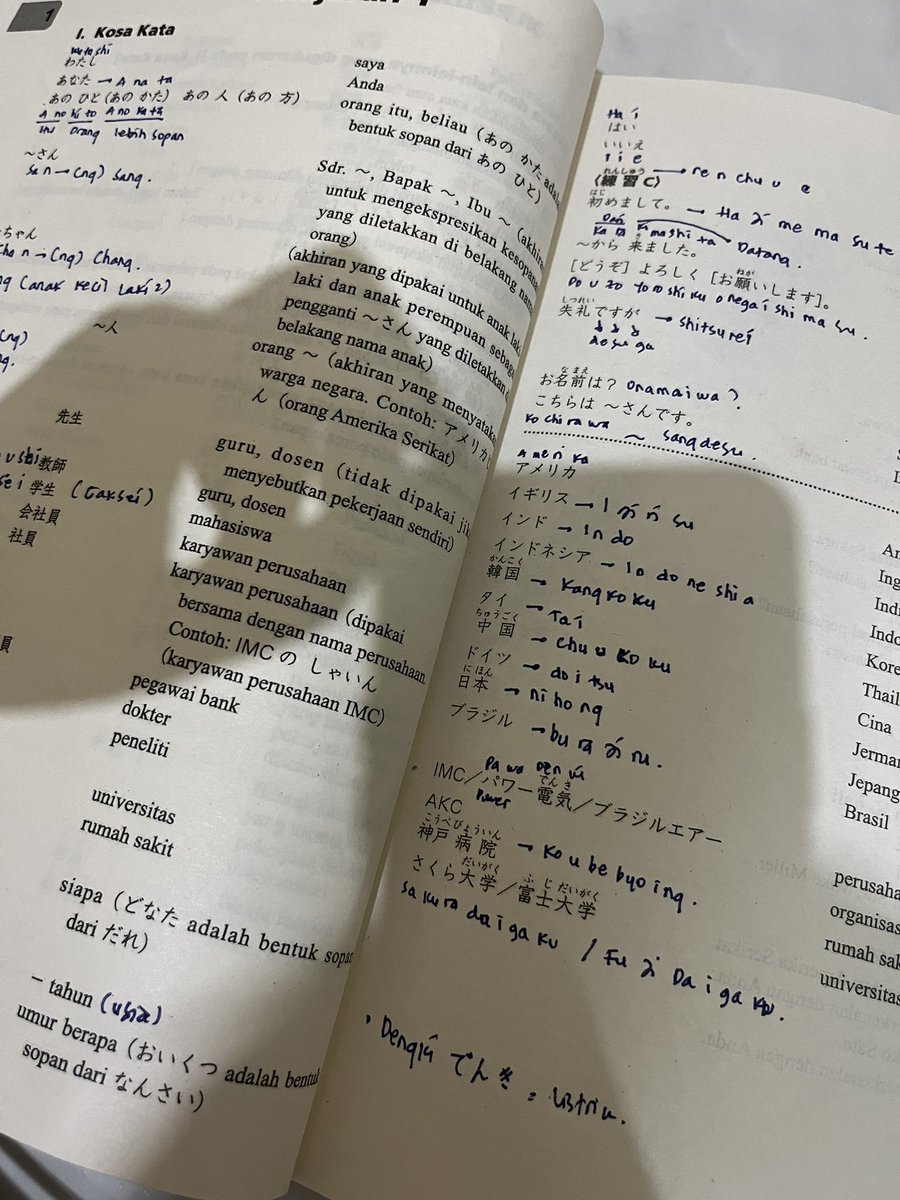 1
I. Kosa Kata
わたし
saya
あなた → A na ta
Anda
あの ひと (あの かた) あの 人 (あの 方)
A no hi to A no ka ta
itu orang lebih sopan
orang itu, beliau (あの かた adalah
bentuk sopan dari あの ひと)
~さん
sa n → (ng) sang.
Sdr. ~, Bapak ~, Ibu ~ (akhira
untuk mengekspresikan kesopana
yang diletakkan di belakang nama
orang)
ちゃん
Cha n → (ng) Chang.
(anak kecil laki2)
(akhiran yang dipakai untuk anak laki
laki dan anak perempuan sebaga
pengganti ~さん yang diletakkan d
belakang nama anak)
~人
orang ~ (akhiran yang menyataka
warga negara. Contoh: アメリカじ
ん (orang Amerika Serikat)
先生
guru, dosen (tidak dipakai jik
menyebutkan pekerjaan sendiri)
教師
guru, dosen
学生 (
mahasiswa
会社員
karyawan perusahaan
社員
karyawan perusahaan (dipakai
bersama dengan nama perusahaan
Contoh: IMC の しゃいん
(karyawan perusahaan IMC)
pegawai bank
dokter
peneliti
universitas
rumah sakit
siapa (どなた adalah bentuk sopan
dari だれ)
– tahun (usia)
umur berapa (おいくつ adalah bentuk
sopan dari なんさい)
Ha i
はい
いいえ
I i e
れんしゅう
〈練習 C〉 → re n chu u
はじ
初めまして。 → Ha ji me ma su te
Dari
Ka ra ki mashi ta Datang.
き
~から 来ました。
ねが
[どうぞ] よろしく [お願いします]。
Do u zo yo ro shi ku o negai shi ma su.
しつれい
失礼ですが → shitsurei
de su ga
なまえ
お名前は? onamaiwa?
こちらは ~さんです。
ko chi ra wa ~ sangdesu.
Ameri ka
アメリカ
イギリス → I gi ri su
インド → In do
インドネシア → In do ne shi a
かんこく
韓国 → kang ko ku
タイ → Tai
ちゅうごく
中国 → chu u ko ku
ドイツ → do i tsu
にほん
日本 → ni hong
ブラジル → bu ra ji ru.
でんき
IMC/パワー電気/ブラジルエアー
Power
AKC
こうべびょういん
神戸病院 → Ko u be byo ing.
だいがく ふじだいがく
さくら大学/富士大学
sa ku ra da i ga ku / Fu ji Da i ga ku.
でんき = listrik.
An
Ing
Indi
Indo
Kore
Thail
Cina
Jerman
Jepang
Brasil
perusaha
organisas
rumah sak
universitas